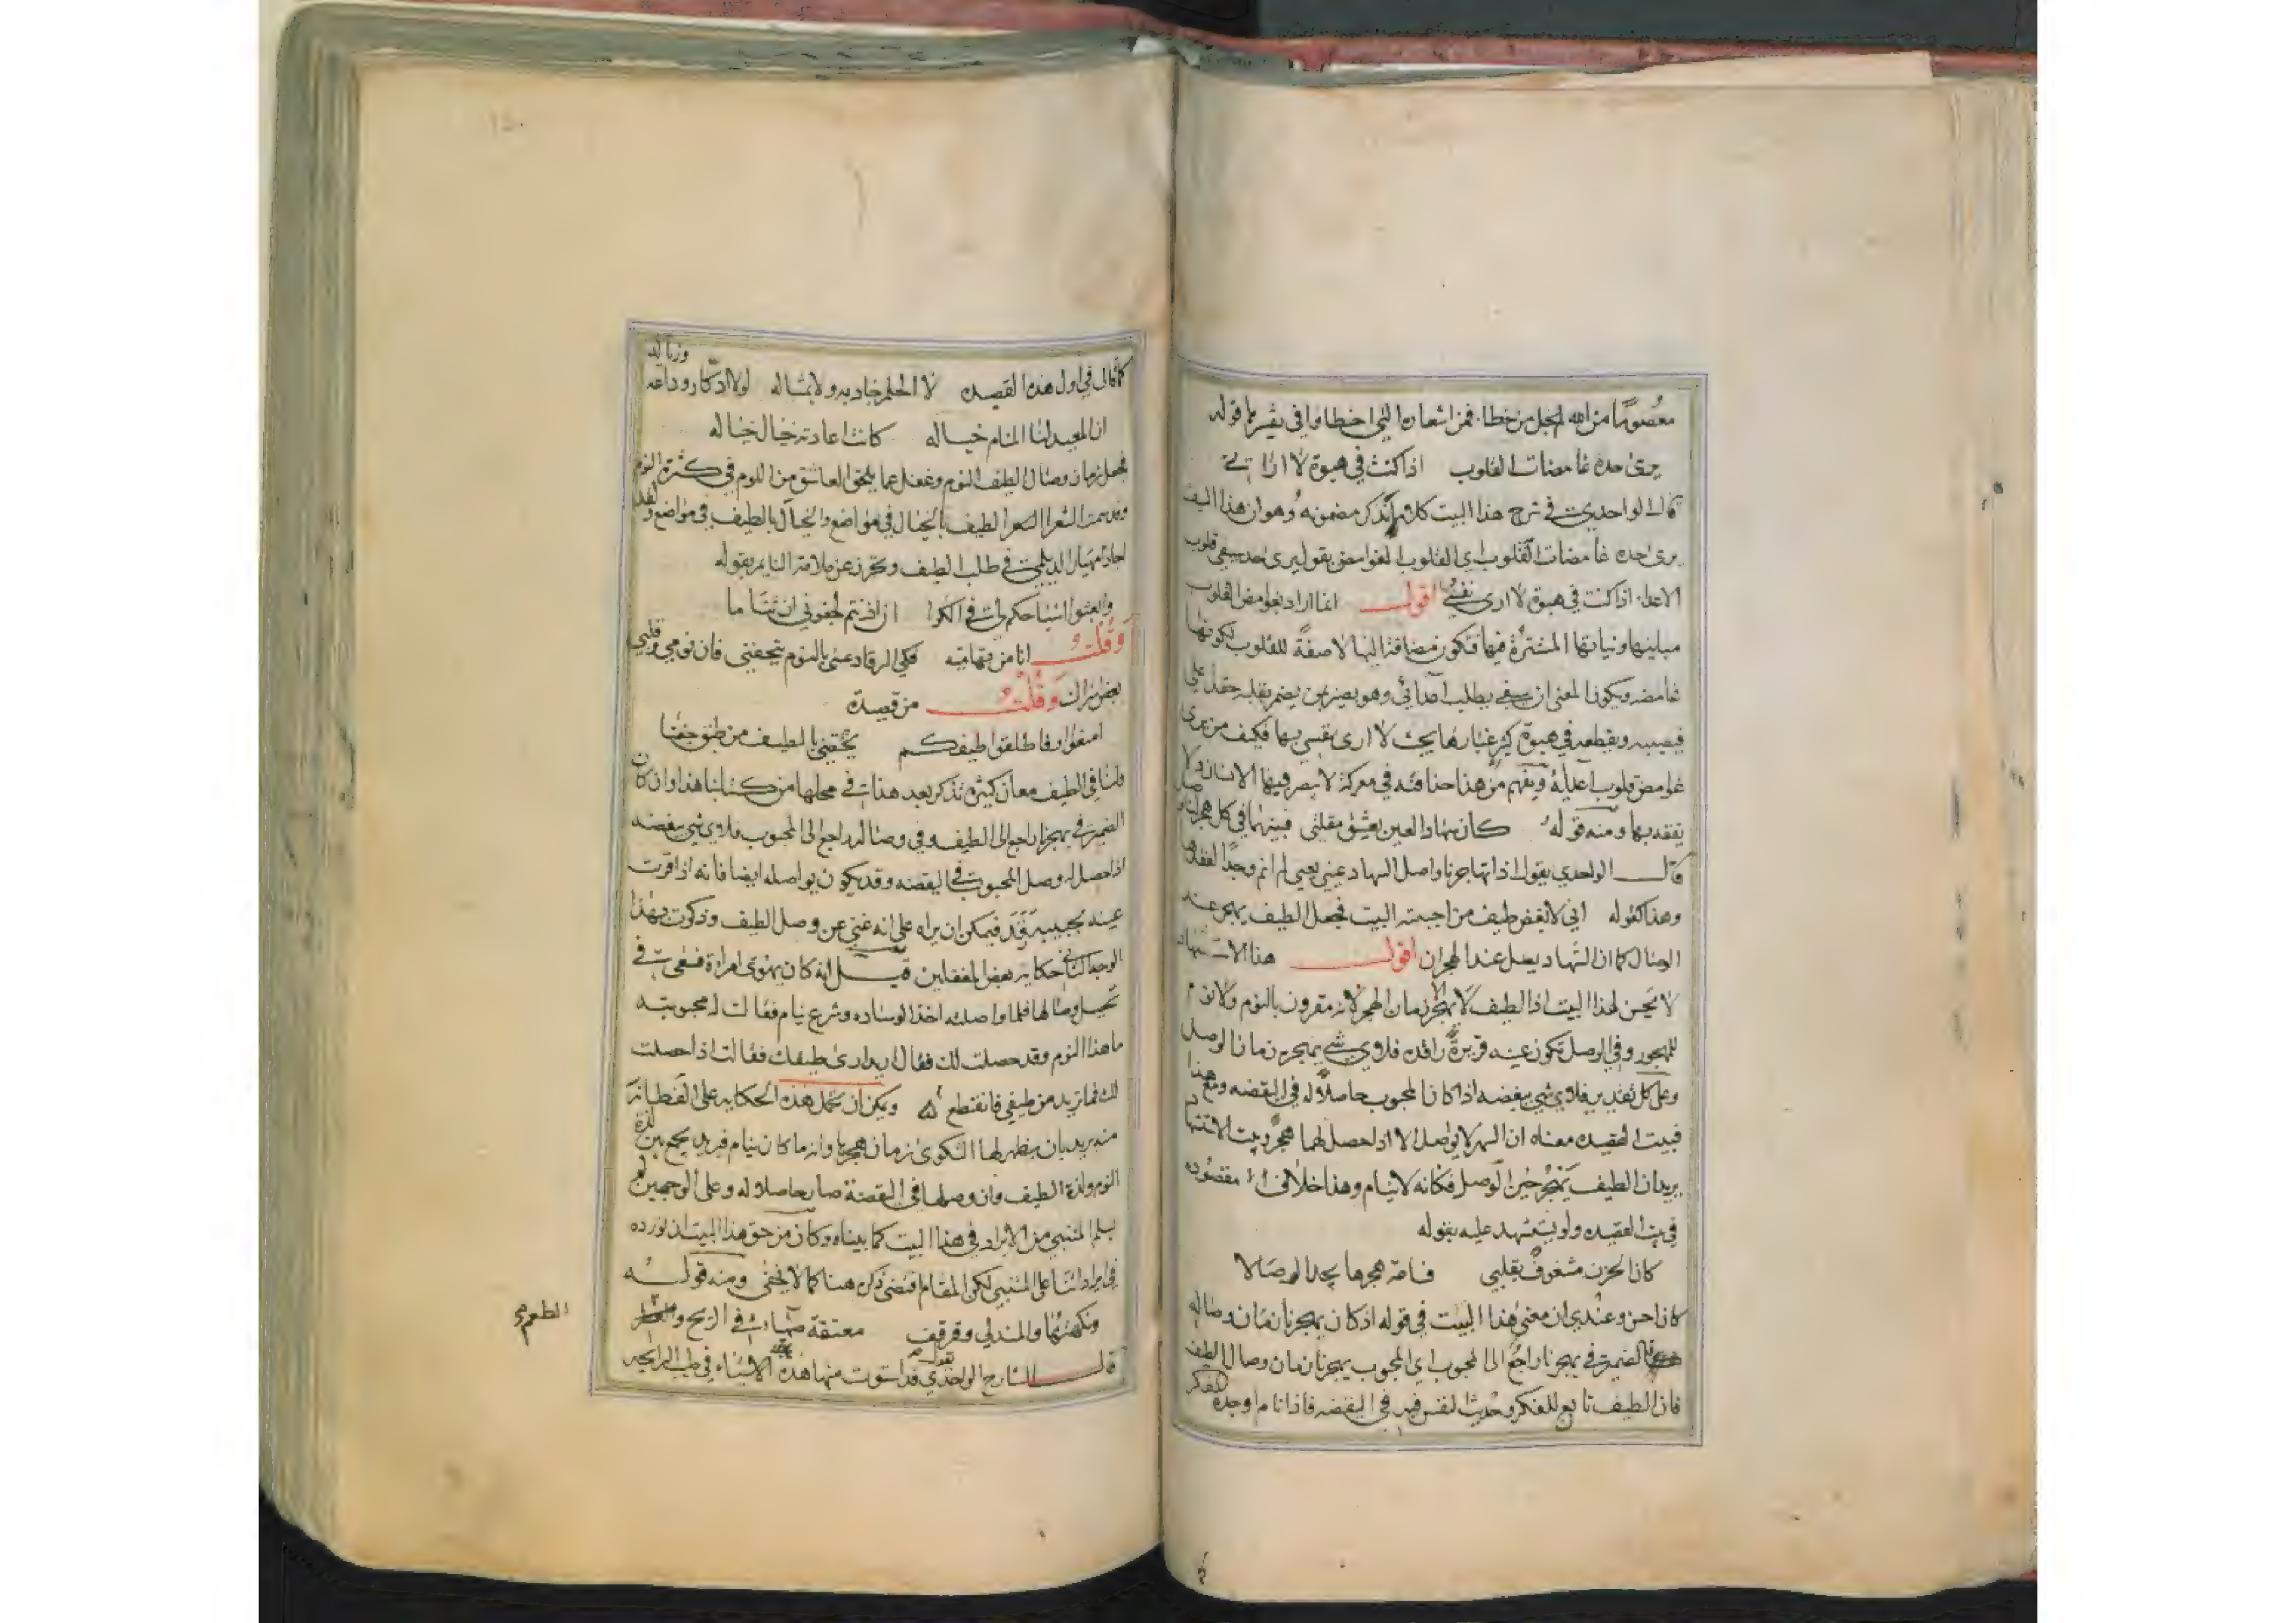 معصومًا من الله لمجل من خطا. فمن اشعاره التي اخطا وا في تفسيرها قوله
يرى حده غامضات القلوب اذا كنت في هبوة لا اراني
قال الواحدي في شرح هذا البيت كلاما نذكر مضمونه وهو ان هذا السيف
يرى حده غامضات القلوب اي القلوب الغوامض يقول يرى حد سيفي قلوب
الاعدا. اذا كنت في هبوة لا ارى نفسي اقول انما اراد بغوامض القلوب
ونياتها المستترة فيها فتكون مضافة اليها لا صفة للقلوب لكونها
غامضه ويكون المعنى ان سيفي يطلب اعدائي وهو بصير بمن يضمر بقلبه حقدا علي
فيصيبه ويقطعه في هبوة كثر غبارها بحيث لا ارى نفسي بها فكيف من يرى
غوامض قلوب اعدايه ويفهم من هذا حذاقته في معركة لا يبصر فيها الانسان ولا
يفقد بها ومنه قوله كان سهاد العين يعشق مقلتي فبينهما في كل هجر لنا وصل
قال الواحدي يقول اذا تهاجرنا واصل السهاد عيني يعني لم انم وجدًا لفقدها
وهذا كقوله اني لابغض طيف من احببته البيت فجعل الطيف يهجر عند
الوصال كما ان السهاد يصل عند الهجران اقول هذا الاستشهاد
لا يحسن لهذا البيت اذ الطيف لا يهجر زمان الهجر لانه مقرون بالنوم ولا نوم
للمهجور وفي الوصل تكون عينه قريرة راقده فلاوي شي يهجره زمان الوصل
وعلى كل تقدير فلاوي شي يبغضه اذا كان المحبوب حاصلا له في اليقضه ومع هذا
فبيت القصيده معناه ان السهر لا يواصل الا اذا حصل لهما هجر وبيت الاستشهاد
يريد ان الطيف يهجر حين الوصل فكانه لا ينام وهذا خلاف مقصوده
في بيت القصيده ولو يستشهد عليه بقوله
كان الحزن مشغوف بقلبي فساعة هجرها يجد الوصالا
كان احسن وعندي ان معنى هذا البيت في قوله اذ كان يهجرنا زمان وصاله
الضمير في يهجرنا راجع الى المحبوب اي المحبوب يهجرنا زمان وصال الطيف
فان الطيف تابع للفكر وحديث النفس فيه في اليقضه فاذا نام اوجده الفكر
كما قال في اول هذه القصيده لا الحلم جاد به ولا بمثاله لولا ادكار وداعه وزياله
ان المعيد لنا المنام خياله كانت اعادته خيال خياله
فجعل زمان وصال الطيف النوم وغفل عما يلحق العاشق من اللوم في كثرة النوم
الشعرا الطيف بالخيال في مواضع والخيال بالطيف في مواضع ولقد
اجاد مهيار الديلمي في طلب الطيف وتحرز عن ملامة النايم بقوله
وابعثوا اشباحكم لي في الكرا ان اذنتم لجفوني ان تناما
وقلت انا من فكي الرقاد عني بالنوم يتحفني فان نومي وقلبي
وقلت من قصيدة
اصفوا وفا طلقوا طيفكم يحقني بالطيف من طلق جفنا
ولنا في الطيف معان كثيرة تذكر بعد هذا في محلها من كتابنا هذا وان كان
الضمير في يهجرنا راجع الى الطيف وفي وصاله راجع الى المحبوب فلاوي شي يبغضه
اذا حصل له وصل المحبوب في اليقضه وقد يكون يواصله ايضا فانه اذا قرت
عينه بحبيبه رقد فيمكن ان يراه على انه غني عن وصل الطيف وذكرت بهذا
الوجه الثاني حكاية بعض المغفلين قيل انه كان يهوى امراة فسعى في
تحصيل وصالها فلما واصلته اخذ الوساده وشرع ينام فقالت له محبوبته
ما هذا النوم وقد حصلت لك فقال اريد ارى طيفك فقالت اذا حصلت
لك فما تريد من طيفي فانقطع ويمكن ان تحمل هذه الحكايه على الفطانة
منه يريد بان يظهر لها الشكوى زمان هجرها وانه ما كان ينام فيريد يجمع بين لذة
النوم ولذة الطيف وان وصلها في اليقضة صار حاصلا له وعلى الوجهين لم
يسلم المتنبي من الايراد في هذا البيت كما بيناه وكان من حق هذا البيت ان نورده
في ايراداتنا على المتنبي لكن المقام اقتضى ذكره هنا كما لا يخفى ومنه قوله
ونكهتها والمندلي وقرقف معتقة صهباء في الريح و
الطعم
قال الشارح الواحدي يقول قد استوت منها هذه الاشياء في طيب الرايحه